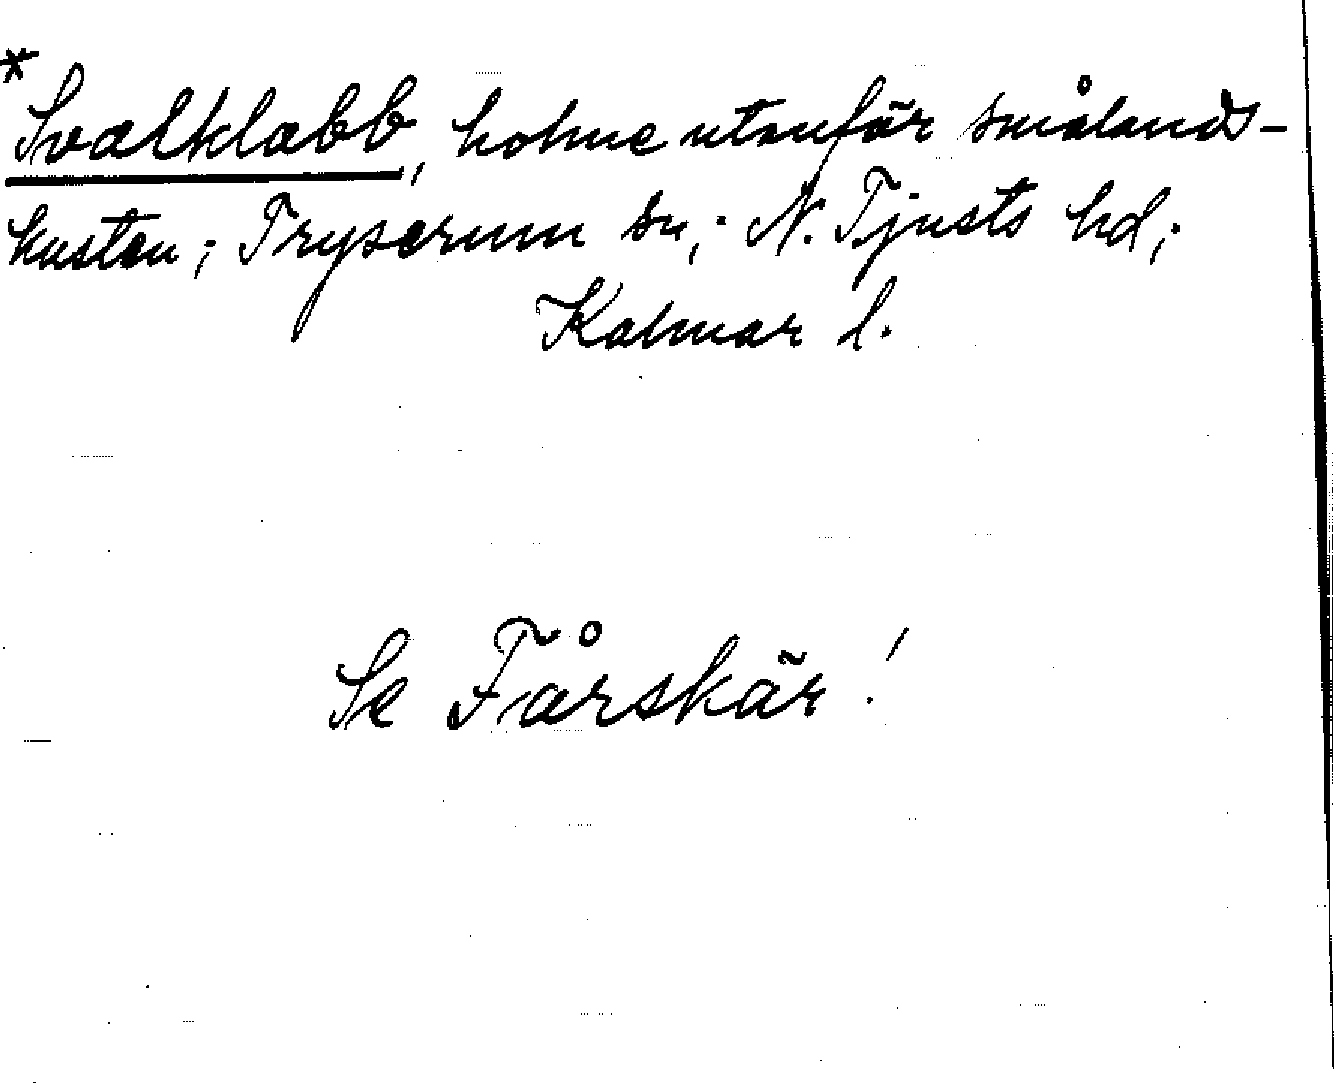 * Svalklabb, holme utanför smålands-
kusten; Tryserum sn; N. Tjusts hd;
Kalmar l.
Se Fårskär!